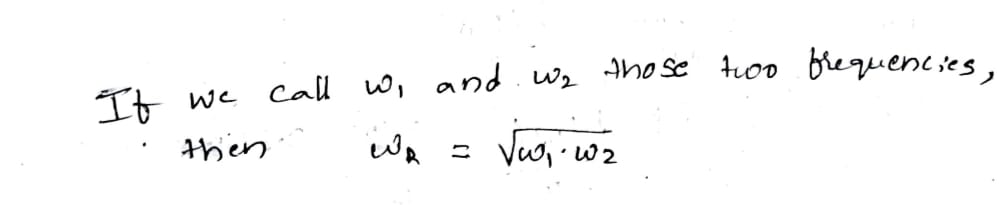 If we call ω₁ and ω₂ those two frequencies,
then ω_R = √ω₁·ω₂